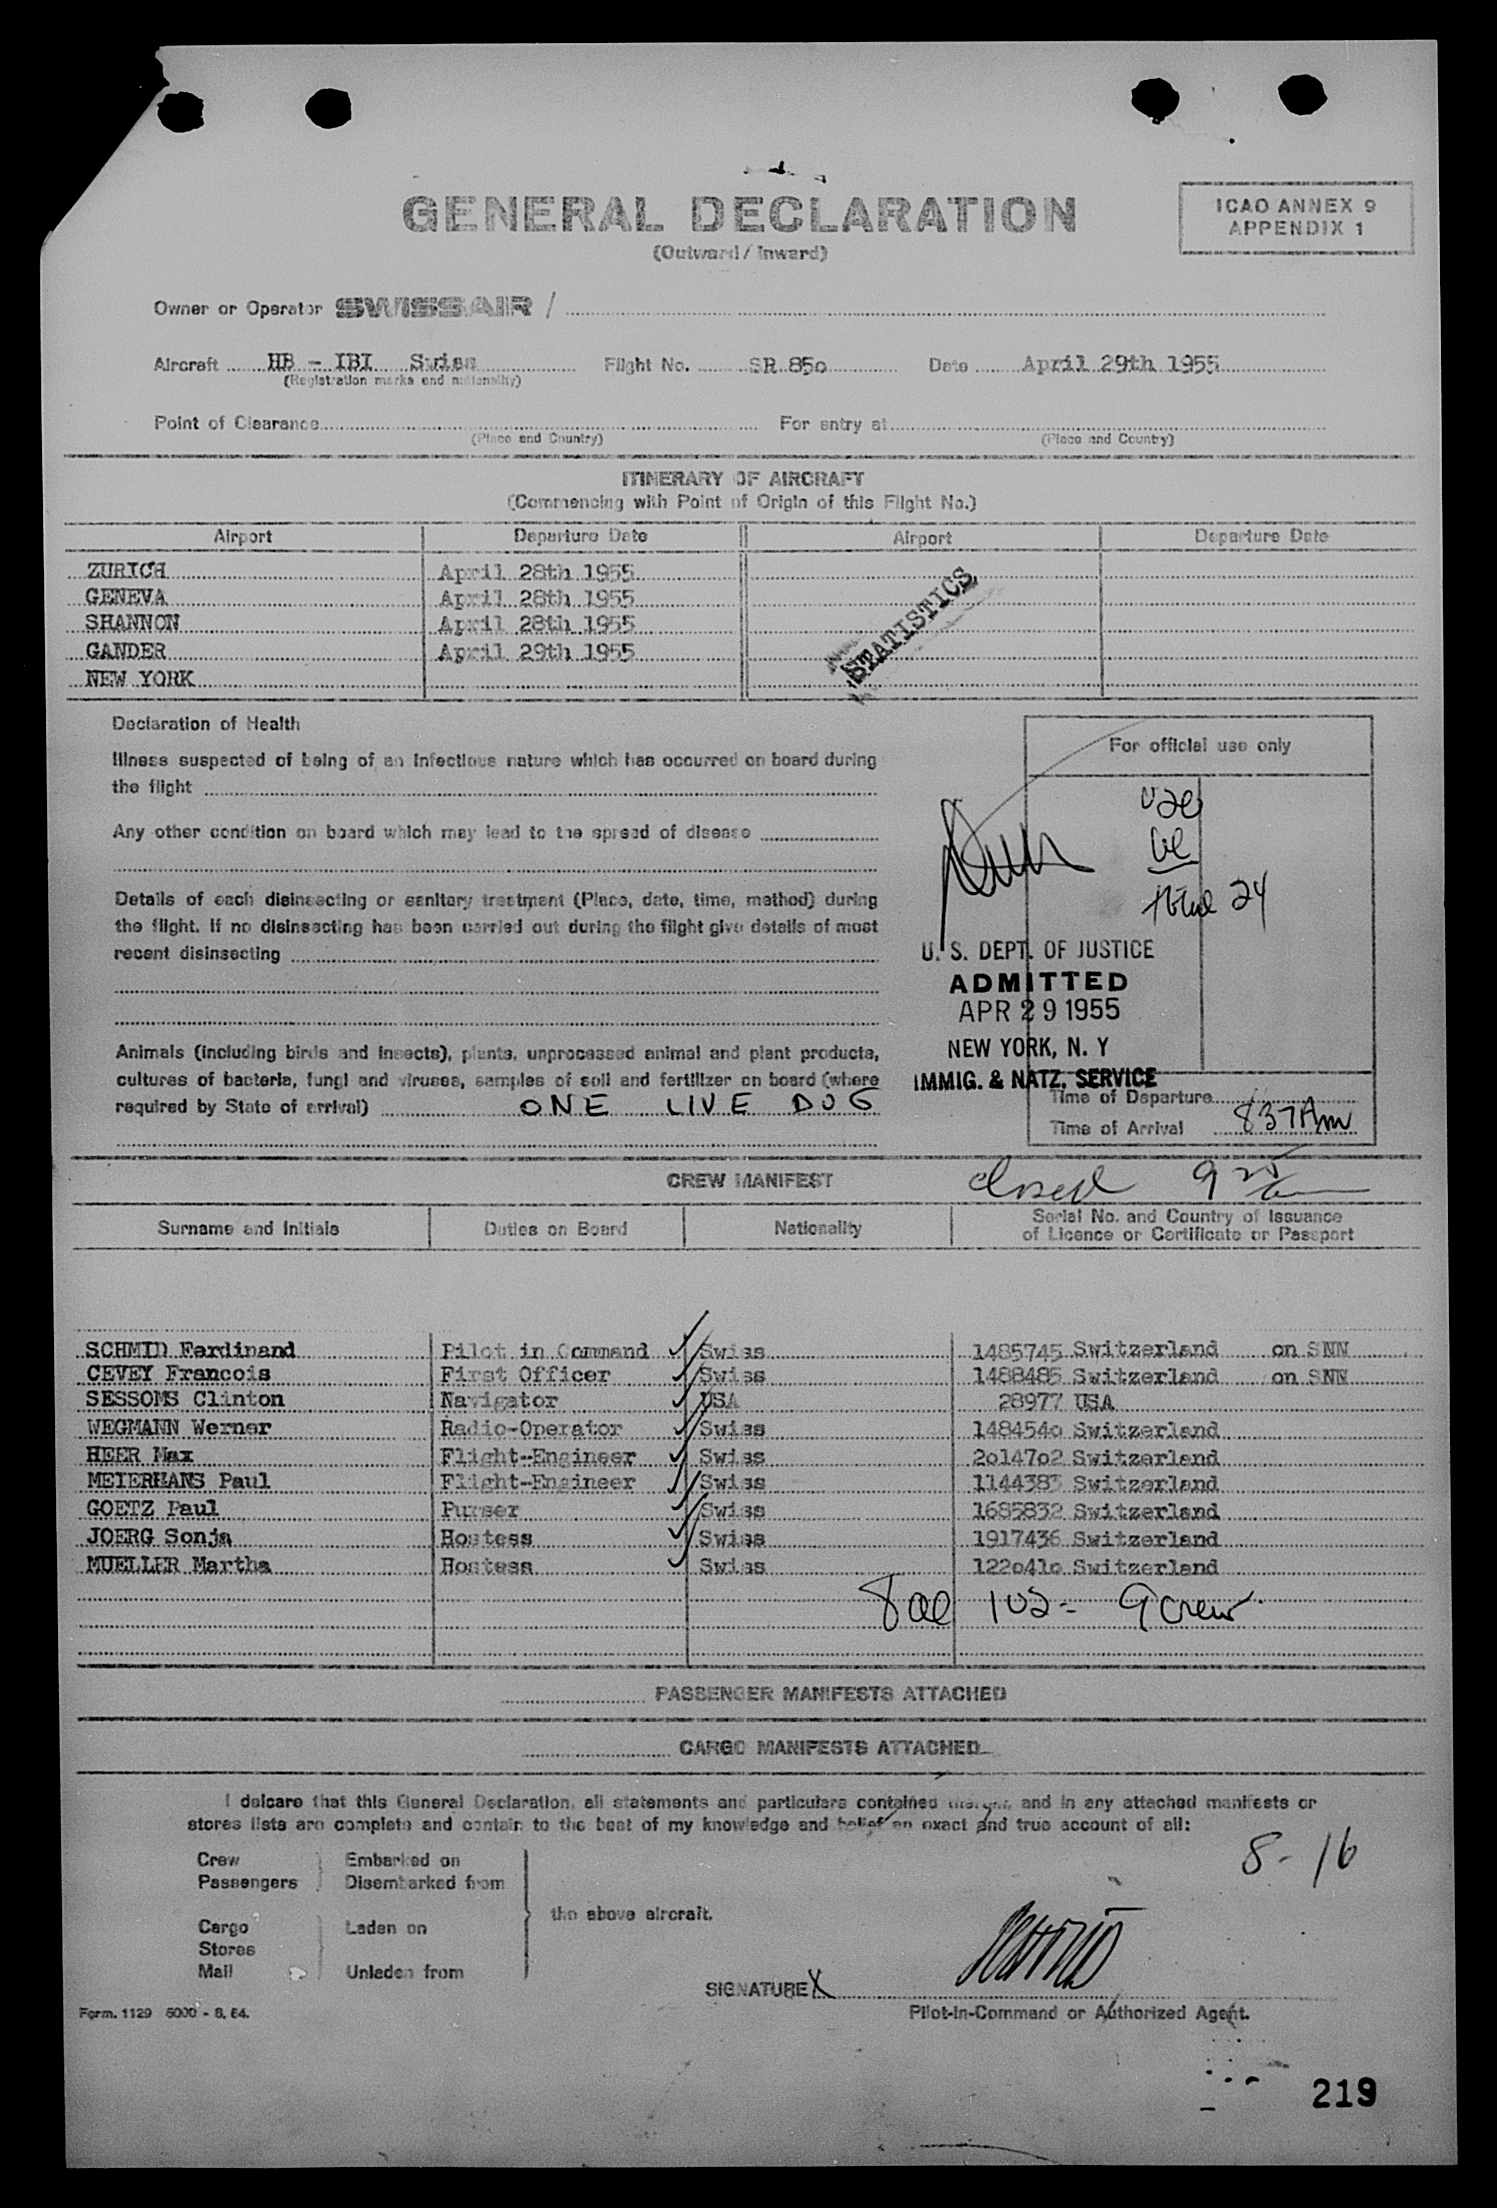 GENERAL DECLARATION
(Outward / Inward)
ICAO ANNEX 9
APPENDIX 1
Owner or Operator SWISSAIR /
Aircraft HB - IBI Swiss Flight No. SR 85o Date April 29th 1955
(Registration marks and nationality)
Point of Clearance For entry at
(Place and Country) (Place and Country)
ITINERARY OF AIRCRAFT
(Commencing with Point of Origin of this Flight No.)
Airport Departure Date Airport Departure Date
ZURICH April 28th 1955
GENEVA April 28th 1955
SHANNON April 28th 1955
GANDER April 29th 1955
NEW YORK
STATISTICS
Declaration of Health
Illness suspected of being of an infectious nature which has occurred on board during
the flight
Any other condition on board which may lead to the spread of disease
Details of each disinsecting or sanitary treatment (Place, date, time, method) during
the flight. If no disinsecting has been carried out during the flight give details of most
recent disinsecting
Animals (including birds and insects), plants, unprocessed animal and plant products,
cultures of bacteria, fungi and viruses, samples of soil and fertilizer on board (where
required by State of arrival) ONE LIVE DOG
For official use only
total 24
U. S. DEPT. OF JUSTICE
ADMITTED
APR 29 1955
NEW YORK, N. Y
IMMIG. & NATZ. SERVICE
Time of Departure
Time of Arrival 837Am
closed
CREW MANIFEST
Surname and Initials Duties on Board Nationality Serial No. and Country of Issuance
of Licence or Certificate or Passport
SCHMID Ferdinand Pilot in Command Swiss 1485745 Switzerland on SNN
CEVEY Francois First Officer Swiss 1488485 Switzerland on SNN
SESSOMS Clinton Navigator USA 28977 USA
WEGMANN Werner Radio-Operator Swiss 148454o Switzerland
HEER Max Flight-Engineer Swiss 2o147o2 Switzerland
MEIERHANS Paul Flight-Engineer Swiss 1144383 Switzerland
GOETZ Paul Purser Swiss 1685832 Switzerland
JOERG Sonja Hostess Swiss 1917436 Switzerland
MUELLER Martha Hostess Swiss 122o41o Switzerland
9 crew
PASSENGER MANIFESTS ATTACHED
CARGO MANIFESTS ATTACHED
I delcare that this General Declaration, all statements and particulars contained and in any attached manifests or
stores lists are complete and contain to the best of my knowledge and belief an exact and true account of all:
8 - 16
Crew Embarked on
Passengers Disembarked from
the above aircraft.
Cargo Laden on
Stores
Mail Unladen from
SIGNATURE X
Pilot-in-Command or Authorized Agent.
Form. 1129 5000 - 8. 54.
219